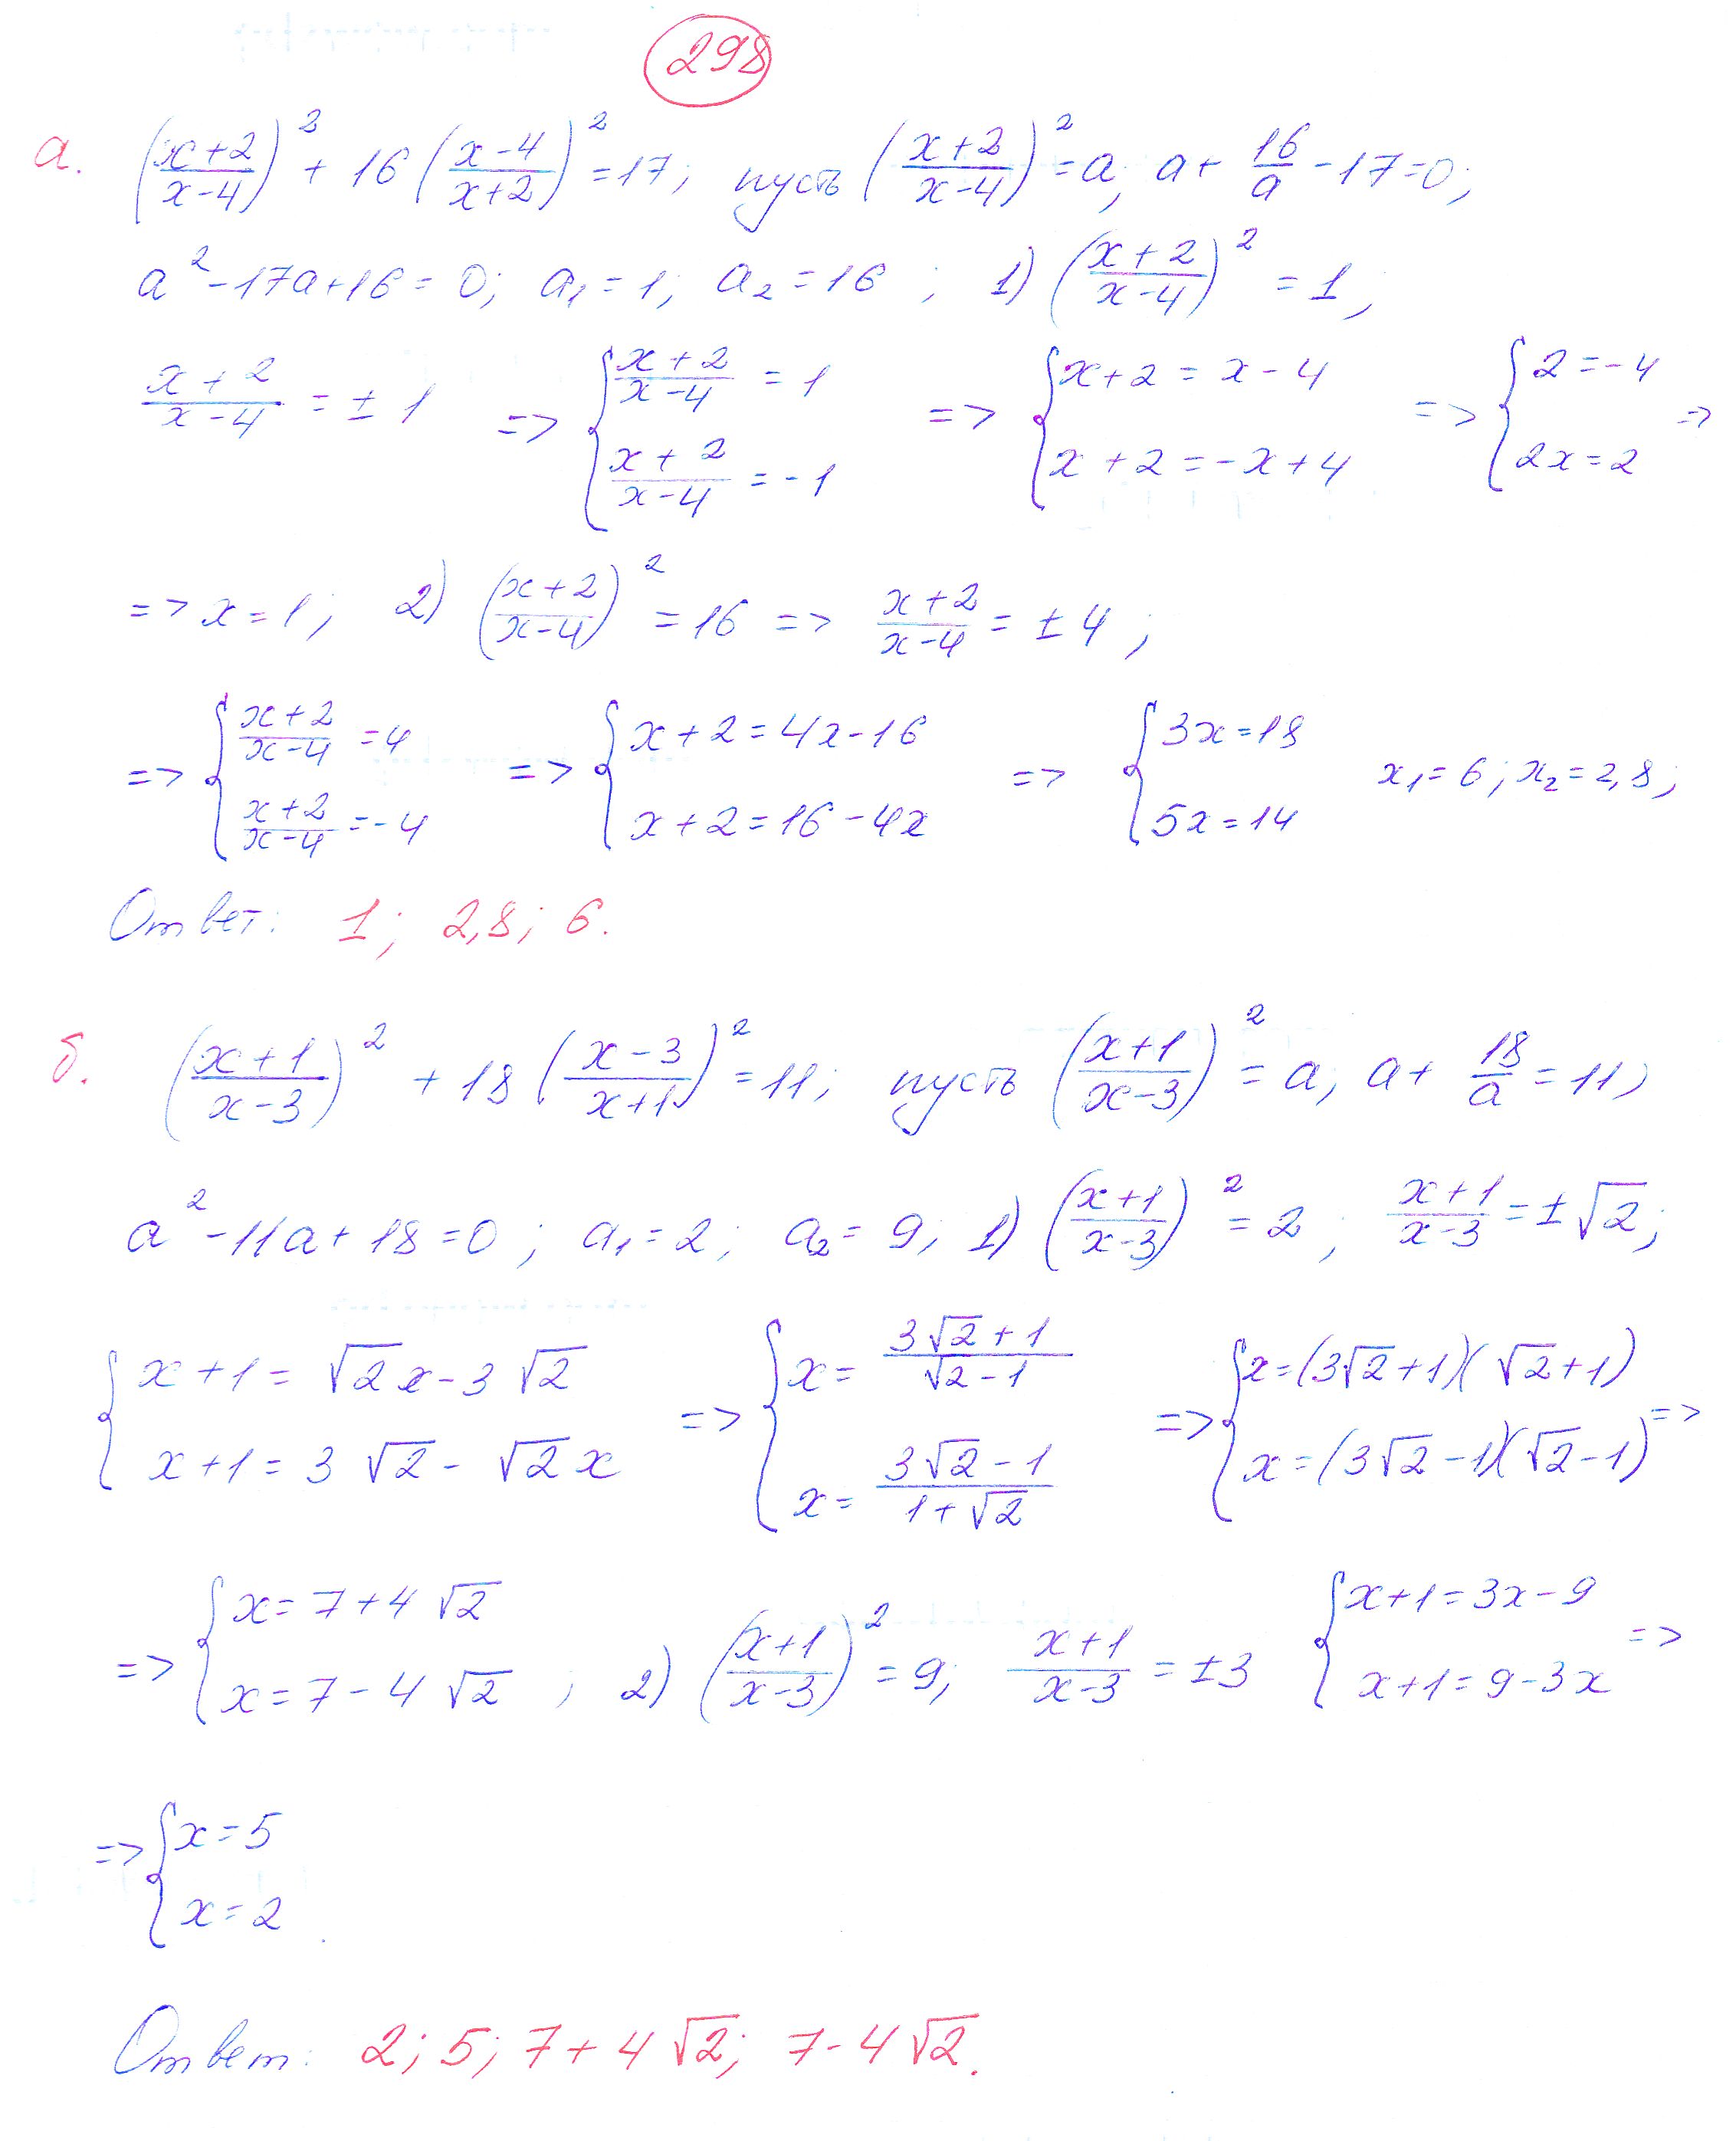 298
а. ((x+2)/(x-4))² + 16((x-4)/(x+2))² = 17; пусть ((x+2)/(x-4))² = a; a + 16/a - 17 = 0;
a² - 17a + 16 = 0; a₁ = 1; a₂ = 16; 1) ((x+2)/(x-4))² = 1;
(x+2)/(x-4) = ± 1 => { (x+2)/(x-4) = 1 ; (x+2)/(x-4) = -1 => { x+2 = x-4 ; x+2 = -x+4 => { 2 = -4 ; 2x = 2 =>
=> x = 1; 2) ((x+2)/(x-4))² = 16 => (x+2)/(x-4) = ± 4;
=> { (x+2)/(x-4) = 4 ; (x+2)/(x-4) = -4 => { x+2 = 4x-16 ; x+2 = 16-4x => { 3x = 18 ; 5x = 14 x₁ = 6; x₂ = 2,8;
Ответ: 1; 2,8; 6.
б. ((x+1)/(x-3))² + 18((x-3)/(x+1))² = 11; пусть ((x+1)/(x-3))² = a; a + 18/a = 11;
a² - 11a + 18 = 0; a₁ = 2; a₂ = 9; 1) ((x+1)/(x-3))² = 2; (x+1)/(x-3) = ±√2;
{ x+1 = √2x - 3√2 ; x+1 = 3√2 - √2x => { x = (3√2+1)/(√2-1) ; x = (3√2-1)/(1+√2) => { x = (3√2+1)(√2+1) ; x = (3√2-1)(√2-1) =>
=> { x = 7+4√2 ; x = 7-4√2 ; 2) ((x+1)/(x-3))² = 9; (x+1)/(x-3) = ±3 { x+1 = 3x-9 ; x+1 = 9-3x =>
=> { x = 5 ; x = 2
Ответ: 2; 5; 7+4√2; 7-4√2.